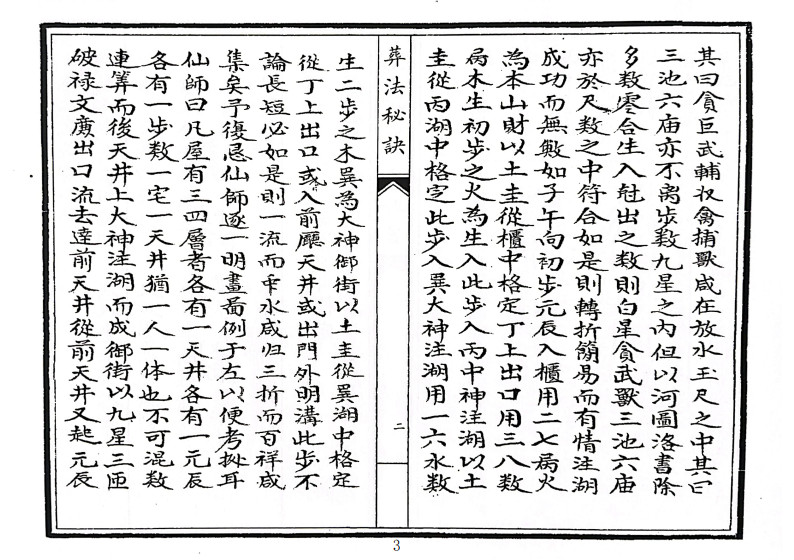 其曰貪巨武輔收禽捕獸咸在放水玉尺之中其曰
三池六庙亦不离步数九星之内但以河圖洛書除
多数零合生入尅出之数則白星貪武獸三池六庙
亦於尺数之中符合如是則轉折簡易而有情注湖
成功而無斁如子午向初步元辰入櫃用二七局火
為本山財以土圭從櫃中格定丁上出口用三八数
局木生初步之火為生入此步入丙中神注湖以土
圭從丙湖中格定此步入巽大神注湖用一六水数
葬法秘訣
二
生二步之木巽為大神御街以土圭從巽湖中格定
從丁上出口或入前廳天井或出門外明溝此步不
論長短必如是則一流而来水咸归三折而百祥咸
集矣予復恳仙師逐一明畫啚例于左以便考挍耳
仙師曰凡屋有三四層者各有一天井各有一元辰
各有一步数一宅一天井猶一人一体也不可混数
連筭而後天井上大神注湖而成御街以九星三匝
破禄文廉出口流去達前天井從前天井又起元辰
3